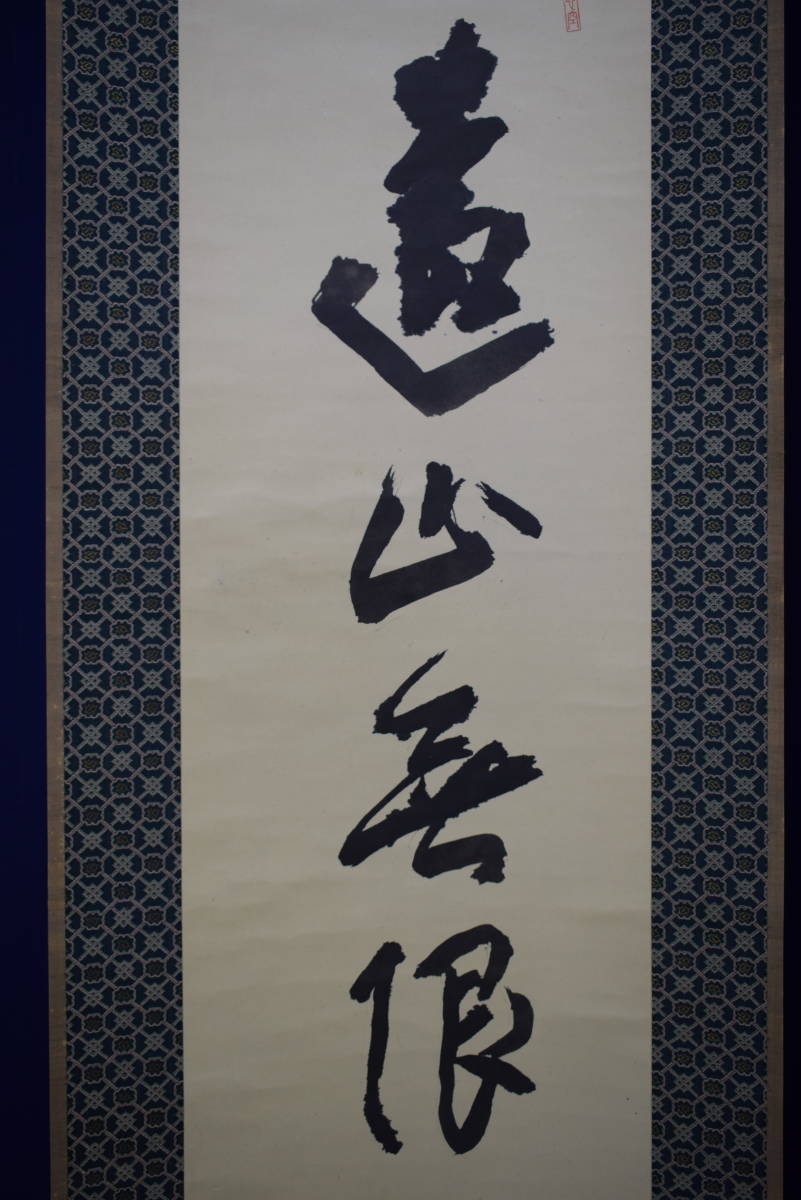 遠山無限